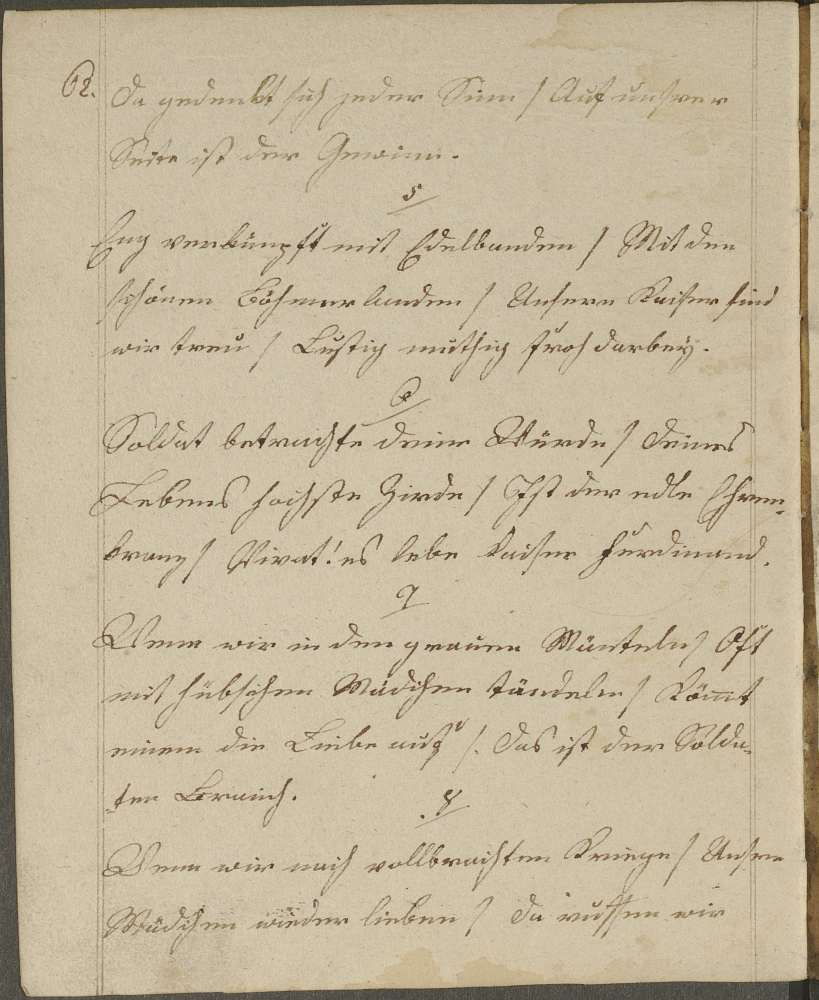 62. Da gedenkt sich jeder Sinn / Auf unsrer
Seite ist der Gewinn.
5
Eng verknüpft mit Edelbanden / Mit den
schönen Böhmerlanden / Unsern Kaiser sind
wir treu / Lustig muthig froh darbey.
6
Soldat betrachte deine Würde / deines
Lebens höchste Zirde / Ist der edle Ehren-
kranz / Vivat! es lebe Kaiser Ferdinand.
7
Wenn wir in den grauen Mänteln / Oft
mit hübschen Mädchen tändeln / Kömt
einem die Liebe auch /. das ist der Solda-
ten Brauch.
8
Wenn wir nach vollbrachten Kriege / Unsre
Mädchen wieder lieben / da ruffen wir